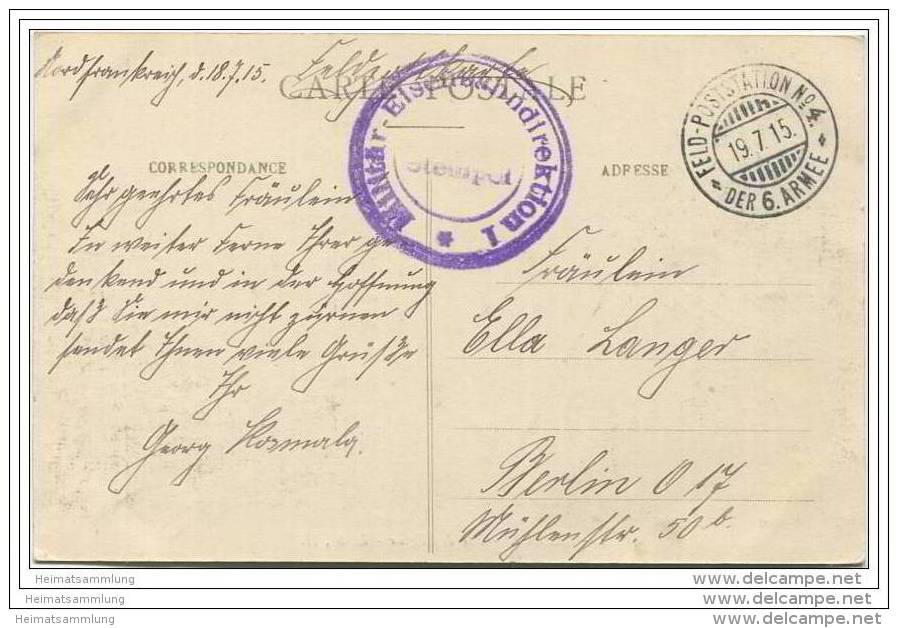 Nordfrankreich, d. 18.7.15. Feldpostkarte
CARTE POSTALE
Militär-Eisenbahndirektion 1 *
Stempel
FELD-POSTSTATION No 4.
19.7.15.
* DER 6. ARMEE *
CORRESPONDANCE
ADRESSE
Sehr geehrtes Fräulein
In weiter Ferne Ihrer ge
denkend und in der Hoffnung
daß Sie mir nicht zürnen
sendet Ihnen viele Grüße
Ihr
Georg
Fräulein
Ella Langer
Berlin O 17
Mühlenstr. 50 b.
Heimatsammlung
Heimatsammlung
Heimatsammlung
http://www.ansichtskarten-center.de
http://www.ansichtskarten-center.de
http://www.ansichtskarten-center.de